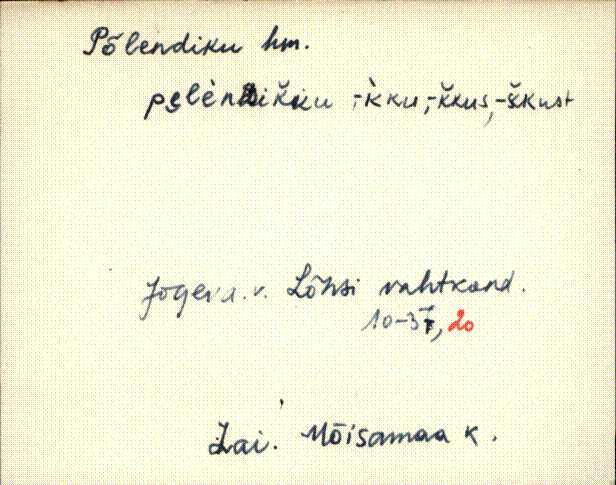 Põlendiku hm.
pe̮lèndiǩku -k̀ku, -ǩkus, -škust
Jõgeva. v. Lõhsi vahtkond.
10-3, 20
Lai. Mõisamaa k.